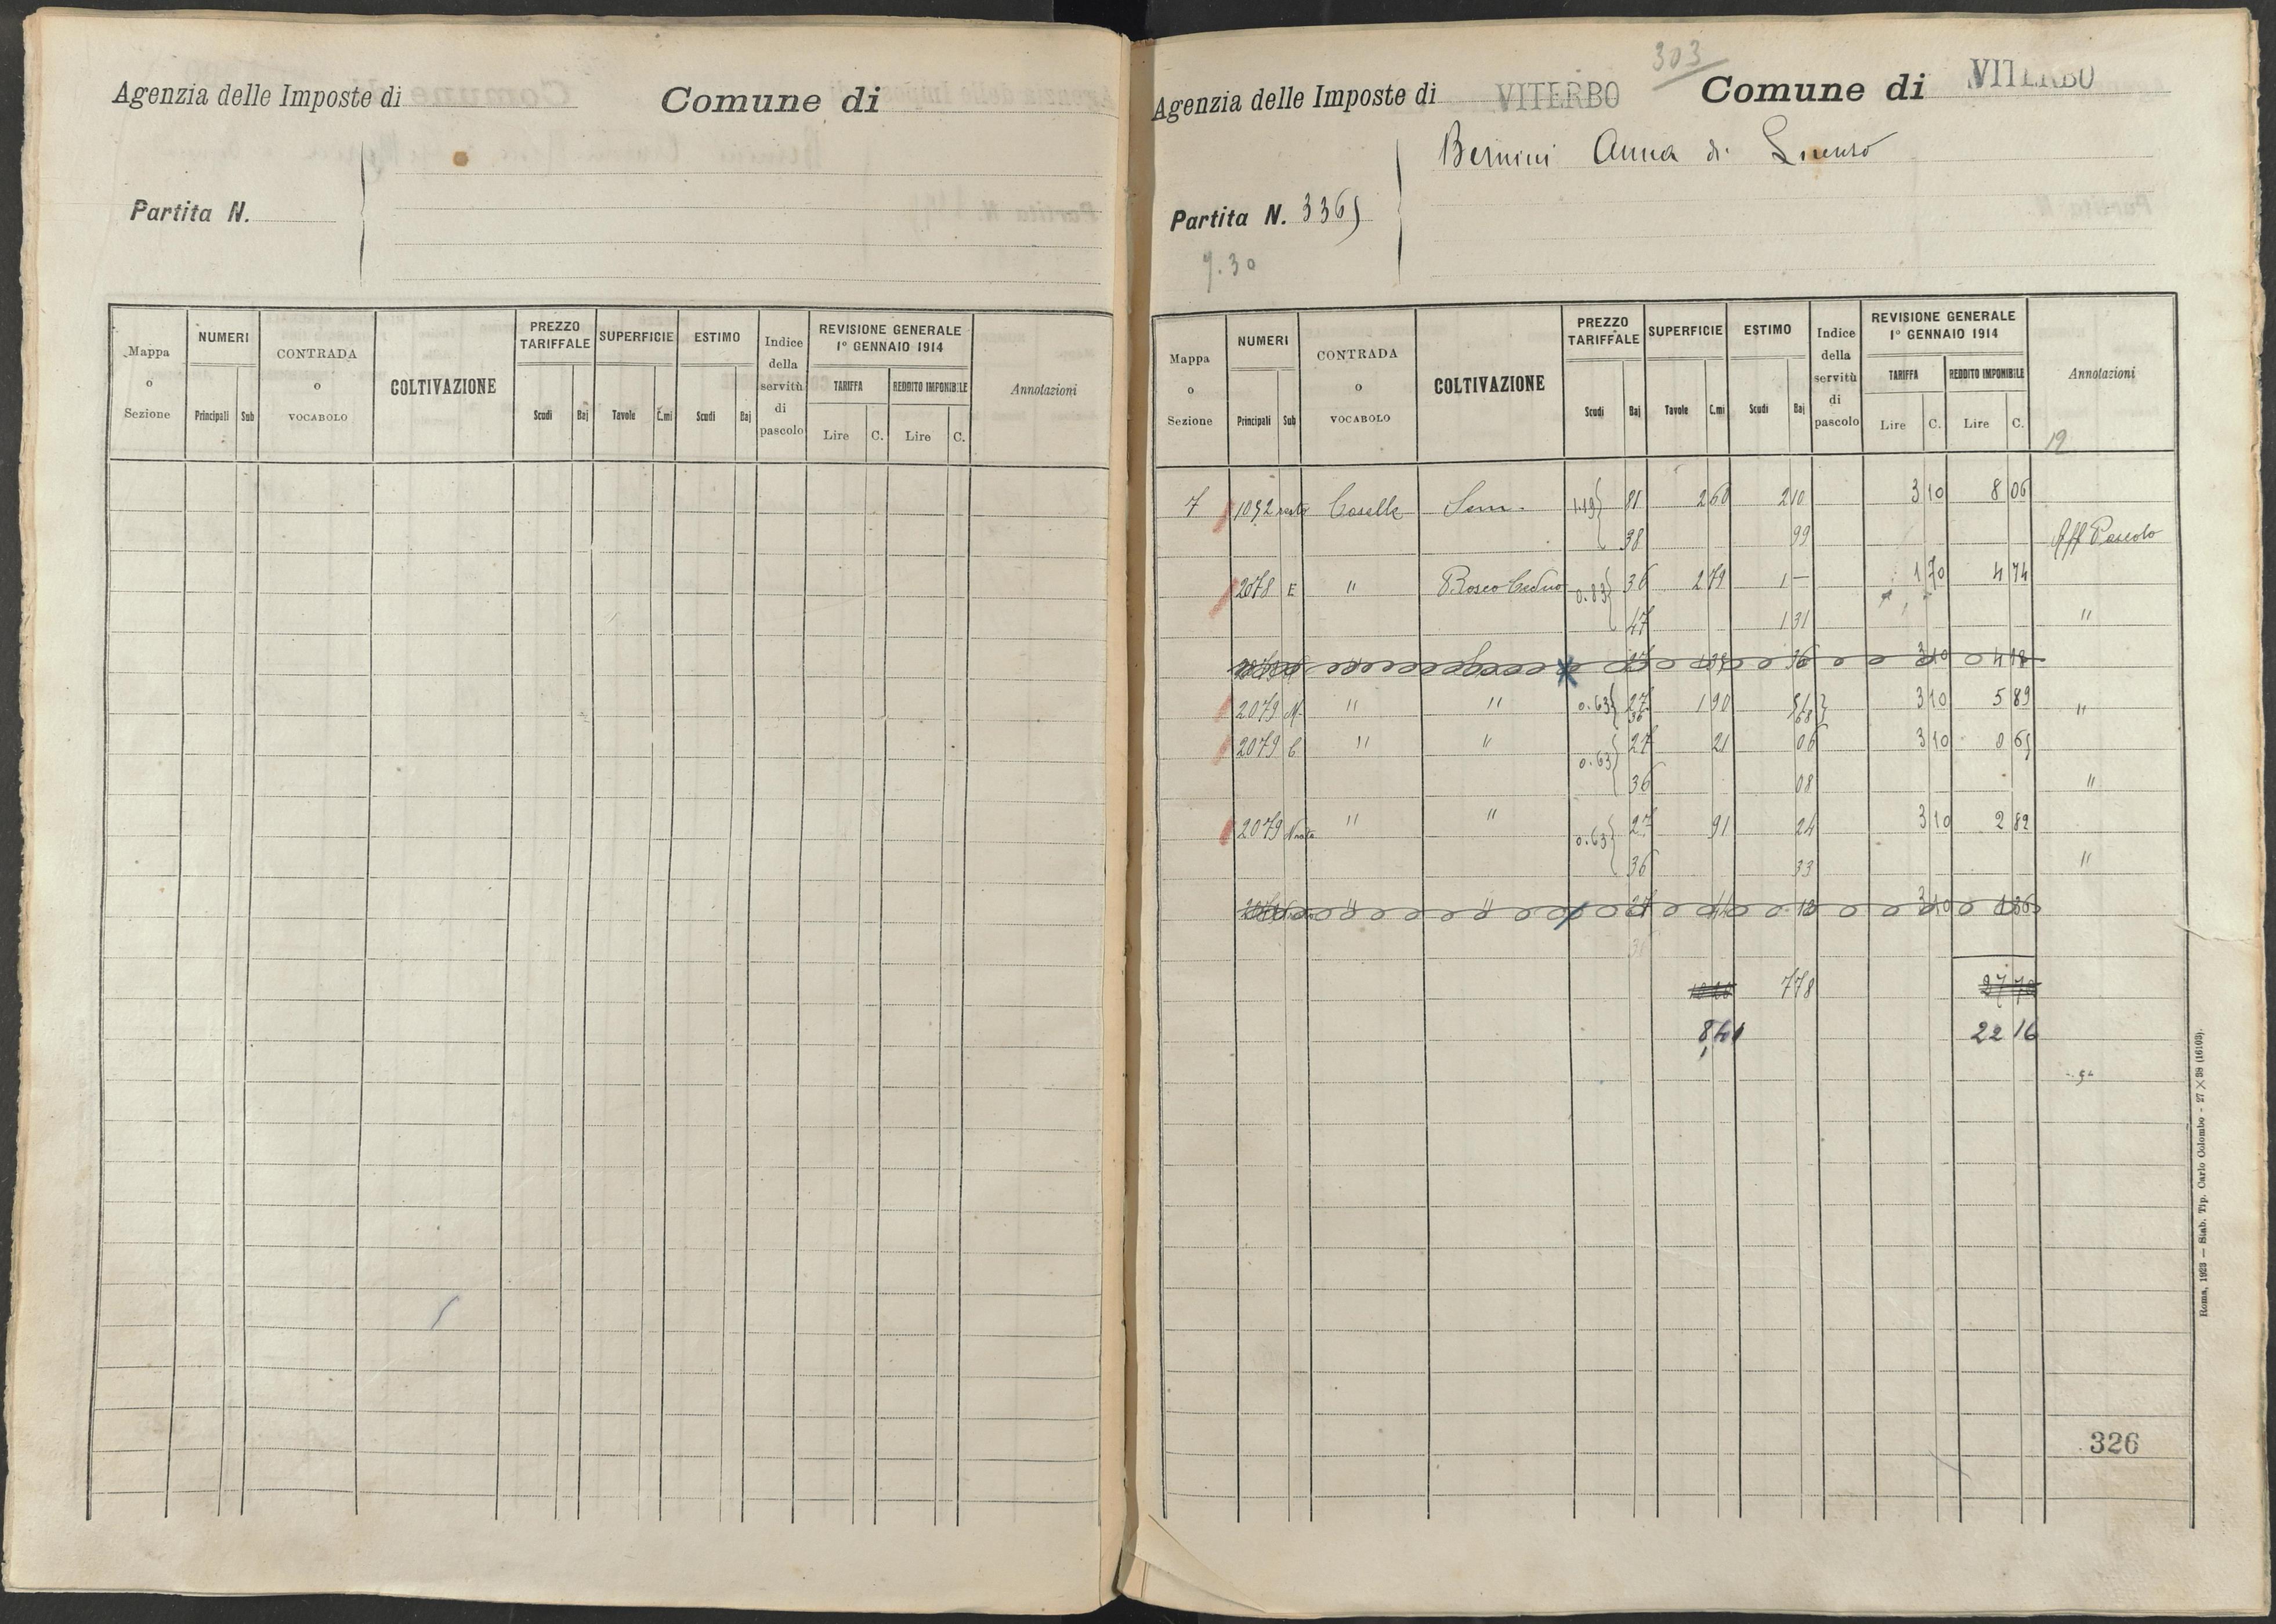 Agenzia delle Imposte di Comune di
Partita N.
Mappa o Sezione NUMERI Principali Sub CONTRADA o VOCABOLO COLTIVAZIONE PREZZO TARIFFALE Scudi Baj SUPERFICIE Tavole C.mi ESTIMO Scudi Baj Indice della servitù di pascolo REVISIONE GENERALE 1° GENNAIO 1914 TARIFFA Lire C. REDDITO IMPONIBILE Lire C. Annotazioni
303
Agenzia delle Imposte di VITERBO Comune di VITERBO
Bernini Anna di
Partita N. 3365
7.30
Mappa o Sezione NUMERI Principali Sub CONTRADA o VOCABOLO COLTIVAZIONE PREZZO TARIFFALE Scudi Baj SUPERFICIE Tavole C.mi ESTIMO Scudi Baj Indice della servitù di pascolo REVISIONE GENERALE 1° GENNAIO 1914 TARIFFA Lire C. REDDITO IMPONIBILE Lire C. Annotazioni
19
7 1092 resto Caselle Sem. 1.19 81 2 60 2 10 3 10 8 06
38 99 Aff Pascolo
2078 E " Bosco Ceduo 0.83 36 2 79 1 — 1 70 4 74
47 1 31 "
3 10 4 18
2079 M " " 0.63 27 1 90 51 3 10 5 89 "
36 68
2079 C " " 0.63 27 21 06 3 10 0 65
36 08 "
2079 N resto " " 0.63 27 91 24 3 10 2 82
36 33 "
" " 27 44 12 3 10 1 36
36
7 78 27 70
8,41 22 16
326
Roma, 1923 — Stab. Tip. Carlo Colombo - 27 × 38 (16103).